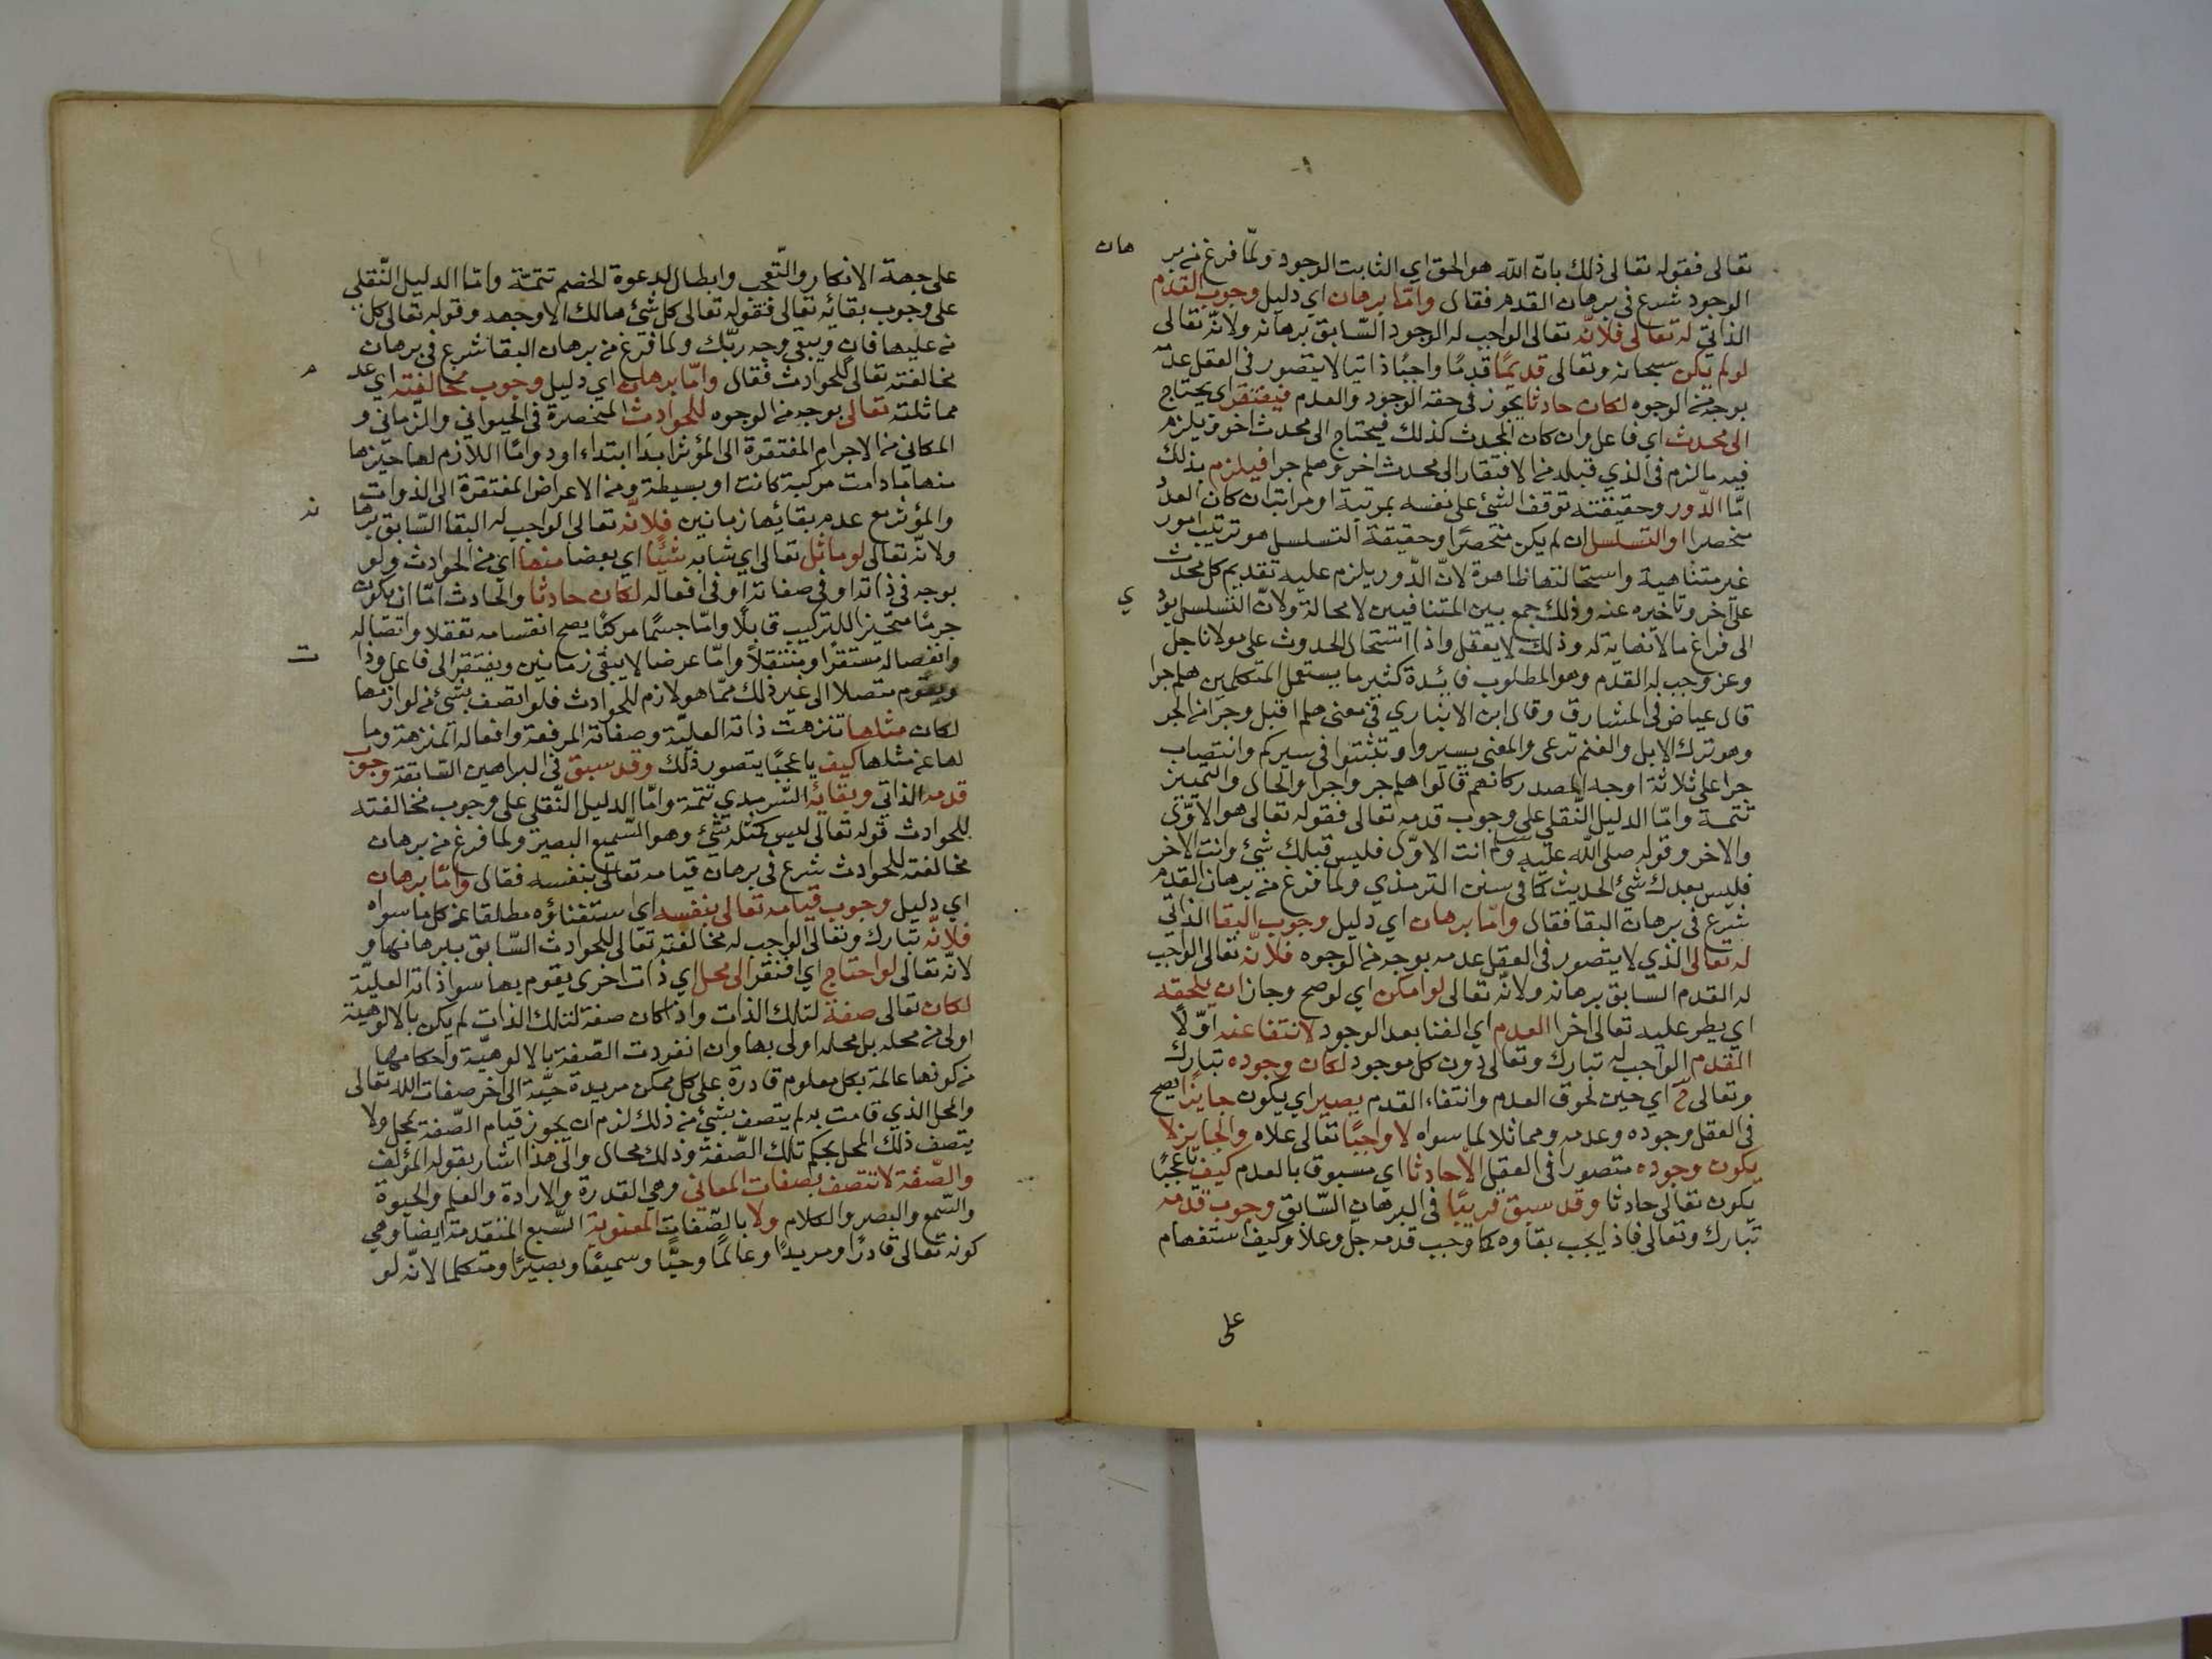 تعالى فقوله تعالى ذلك بانّ الله هو الحق اي الثابت الوجود ولمّا فرغ من بر
هان
الوجود شرع في برهان القدم فقال وامّا برهان اي دليل وجوب القدم
الذاتي له تعالى فلانّه تعالى الواجب له الوجود السّابق برهانه ولانّه تعالى
لو لم يكن سبحانه وتعالى قديمًا قدمًا واجبًا ذاتيا لا يتصور في العقل عدمه
بوجه من الوجوه لكان حادثا يجوز في حقه الوجود والعدم فيفتقر اي يحتاج
الى محدث اي فاعل وان كان المحدث كذلك فيحتاج الى محدث اخر ويلزم
فيه ما لزم في الذي قبله من الافتقار الى محدث اخر وهلم جرا فيلزم بذلك
امّا الدّور وحقيقته توقف الشئ على نفسه بمرتبة او مراتب ان كان العدد
منحصرا او التسلسل ان لم يكن منحصرًا وحقيقة التسلسل هو ترتيب امور
غير متناهية واستحالتها ظاهرة لانّ الدّور يلزم عليه تقديم كل محدث
على آخر وتاخيره عنه وذلك جمع بين المتنافيين لا محالة ولانّ التسلسل يؤد
ي
الى فراغ ما لا نهاية له وذلك لا يعقل واذا استحال الحدوث على مولانا جل
وعز وجب له القدم وهو المطلوب فائدة كثير ما يستعمل المتكلمين هلم جرا
قال عياض في المشارق وقال ابن الانباري في معنى هلم اقبل وجرا من الجر
وهو ترك الابل والغنم ترعى والمعنى يسيروا وتثبتوا في سيركم وانتصاب
جرا على ثلاثة اوجه المصدر كانهم قالوا هلم جر واجرا والحال والتمييز
تتمة وامّا الدليل النّقلي على وجوب قدمه تعالى فقوله تعالى هو الاوّل
والاخر وقوله صلى الله عليه وسلم انت الاوّل فليس قبلك شئ وانت الاخر
فليس بعدك شئ الحديث كما في سنن الترمذي ولما فرغ من برهان القدم
شرع في برهان البقا فقال وامّا برهان اي دليل وجوب البقا الذاتي
له تعالى الذي لا يتصور في العقل عدمه بوجه من الوجوه فلانّه تعالى الواجب
له القدم السابق برهانه ولانّه تعالى لو امكن اي لو صح وجاز ان يلحقه
اي يطر عليه تعالى اخرا العدم اي الفنا بعد الوجود لانتفا عنه اوّلًا
القدم الواجب له تبارك وتعالى دون كل موجود لكان وجوده تبارك
وتعالى ح اي حين لحوق العدم وانتفاء القدم يصير اي يكون جايزًا يصح
في العقل وجوده وعدمه ومماثلا لما سواه لا واجبًا تعالى علاه والجايز لا
يكون وجوده متصورا في العقل الّا حادثا اي مسبوق بالعدم كيف يا عجبًا
يكون تعالى حادثا وقد سبق قريبًا في البرهان السّابق وجوب قدمه
تبارك وتعالى فاذ ايجب بقاوه كما وجب قدمه جلّ وعلا وكيف استفهام
على
على جهة الانكار والتّعجب وابطال لدعوة الخضم تتمّة وامّا الدليل النّقلي
على وجوب بقائه تعالى فقوله تعالى كل شئ هالك الا وجهه وقوله تعالى كل
من عليها فان ويبقى وجه ربّك ولما فرغ من برهان البقا شرع في برهان
مخالفته تعالى للحوادث فقال وامّا برهان اي دليل وجوب مخالفته اي عد
م
مماثلته تعالى بوجه من الوجوه للحوادث المنحصرة في الحيواني والزّماني و
المكاني من الاجرام المفتقرة الى المؤثر ابدًا ابتداء او دوامًا اللازم لها حيّزها
منها ما دامت مركبة كانت او بسيطة ومن الاعراض المفتقرة الى الذوات
والمؤثر مع عدم بقائها زمانين فلانّه تعالى الواجب له البقا السّابق برها
نه
ولانّه تعالى لو ماثل تعالى اي شابه شيئًا اي بعضا منها اي من الحوادث ولو
بوجه في ذاته او في صفاته او في افعاله لكان حادثا والحادث امّا ان يكون
جرمًا متحيّزا للتركيب قابلًا وامّا جسمًا مركبًا يصح انقسامه تعقلا واتصاله
وانفصاله مستقرًا ومنتقلًا وامّا عرضا لا يبقى زمانين ويفتقر الى فاعل وذا
ت
ويقوم متصلا الى غير ذلك ممّا هو لازم للحوادث فلو اتصف بشئ من لوازمها
لكان مثلها تنزهت ذاته العليّة وصفاته المرفعة وافعاله المنزهة وما
لها عن مثلها كيف يا عجبًا يتصور ذلك وقد سبق في البراهين السّابقة وجوب
قدمه الذاتي وبقائه السّرمدي تتمة وامّا الدليل النّقلي على وجوب مخالفته
للحوادث قوله تعالى ليس كمثله شئ وهو السّميع البصير ولما فرغ من برهان
مخالفته للحوادث شرع في برهان قيامه تعالى بنفسه فقال وامّا برهان
اي دليل وجوب قيامه تعالى بنفسه اي استغناؤه مطلقا عن كل ما سواه
فلانّه تبارك وتعالى الواجب له مخالفته تعالى للحوادث السّابق ببرهانها و
لانّه تعالى لو احتاج اي افتقر الى محل اي ذات اخرى يقوم بها سوا ذاته العليّة
لكان تعالى صفة لتلك الذات واذا كان صفة لتلك الذات لم يكن بالالوهيّة
اولى من محله بل محله اولى بها وان انفردت الصّفة بالالوهيّة واحكامها
من كونها عالمة بكل معلوم قادرة على كل ممكن مريدة حيّة الى اخر صفات الله تعالى
والمحل الذي قامت به لم يتصف بشئ من ذلك لزم ان يجوز قيام الصّفة بمحل ولا
يتصف ذلك المحل بحكم تلك الصّفة وذلك محال والى هذا اشار بقوله المؤلف
والصّفة لا تتصف بصفات المعاني وهي القدرة والارادة والعلم والحيوة
والسّمع والبصر والكلام ولا بالصّفات المعنوية السّبع المتقدمة ايضا وهي
كونه تعالى قادرًا ومريدًا وعالمًا وحيًّا وسميعًا وبصيرًا ومتكلما لانّه لو